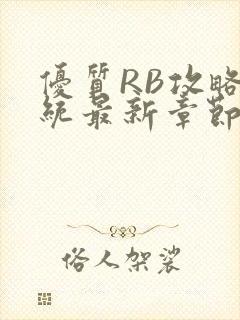 優質RB攻略
統最新章節
俗人架裟